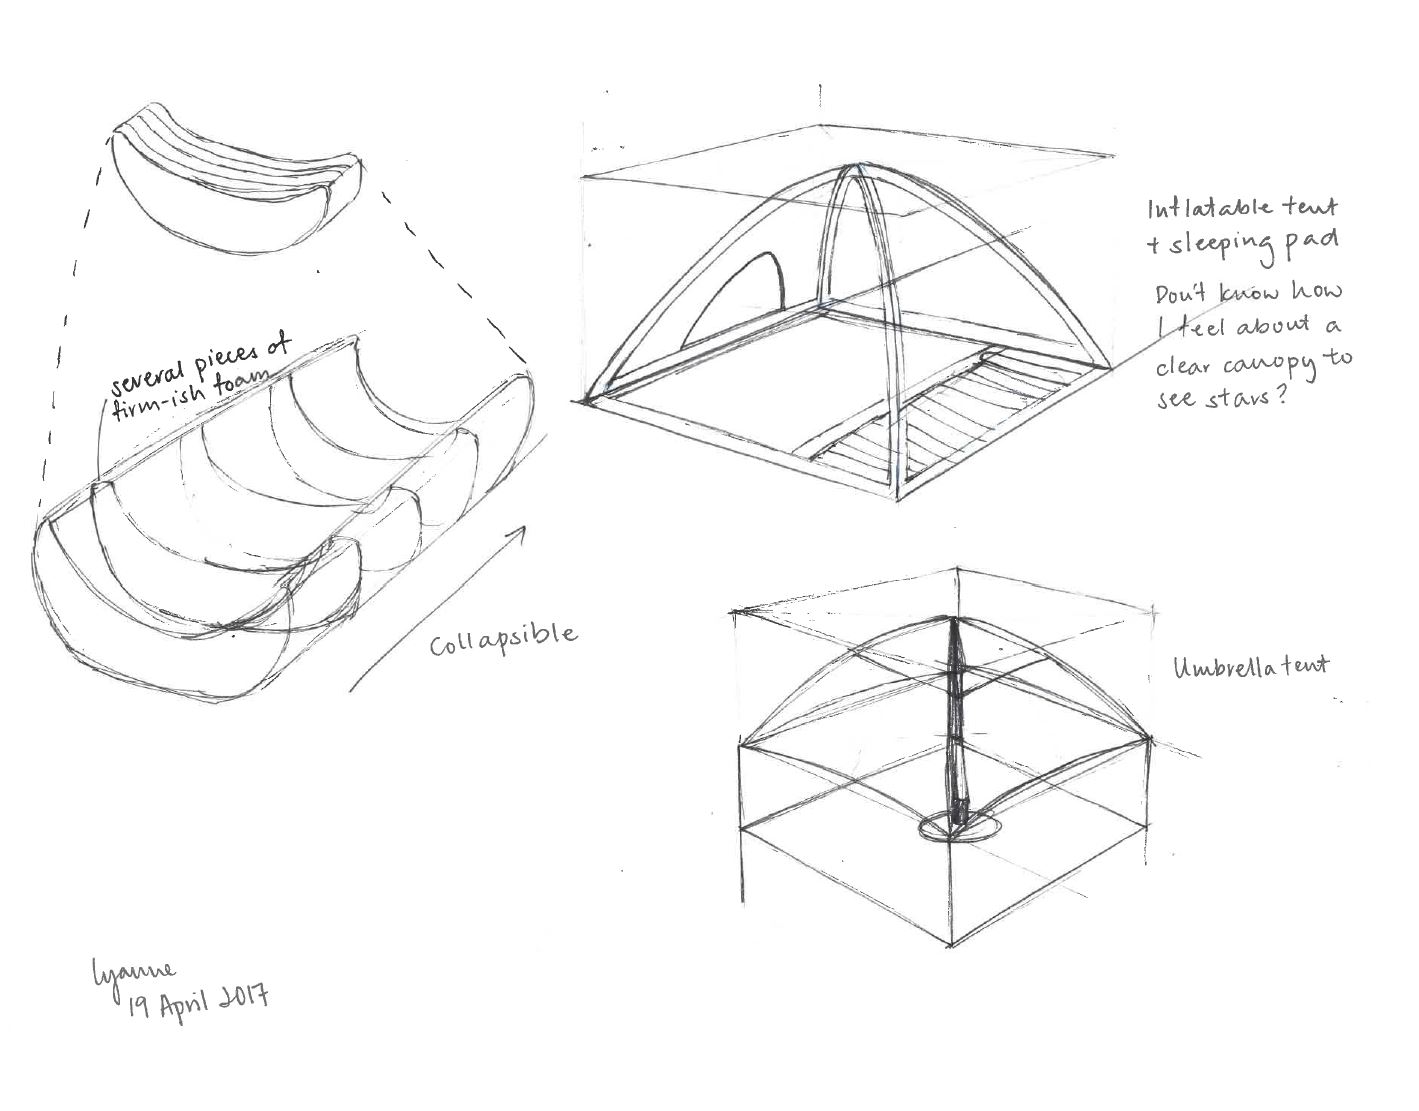 several pieces of
firm-ish foam
Collapsible
Inflatable tent
+ sleeping pad
Don't know how
I feel about a
clear canopy to
see stars?
Umbrella tent
Lyanne
19 April 2017